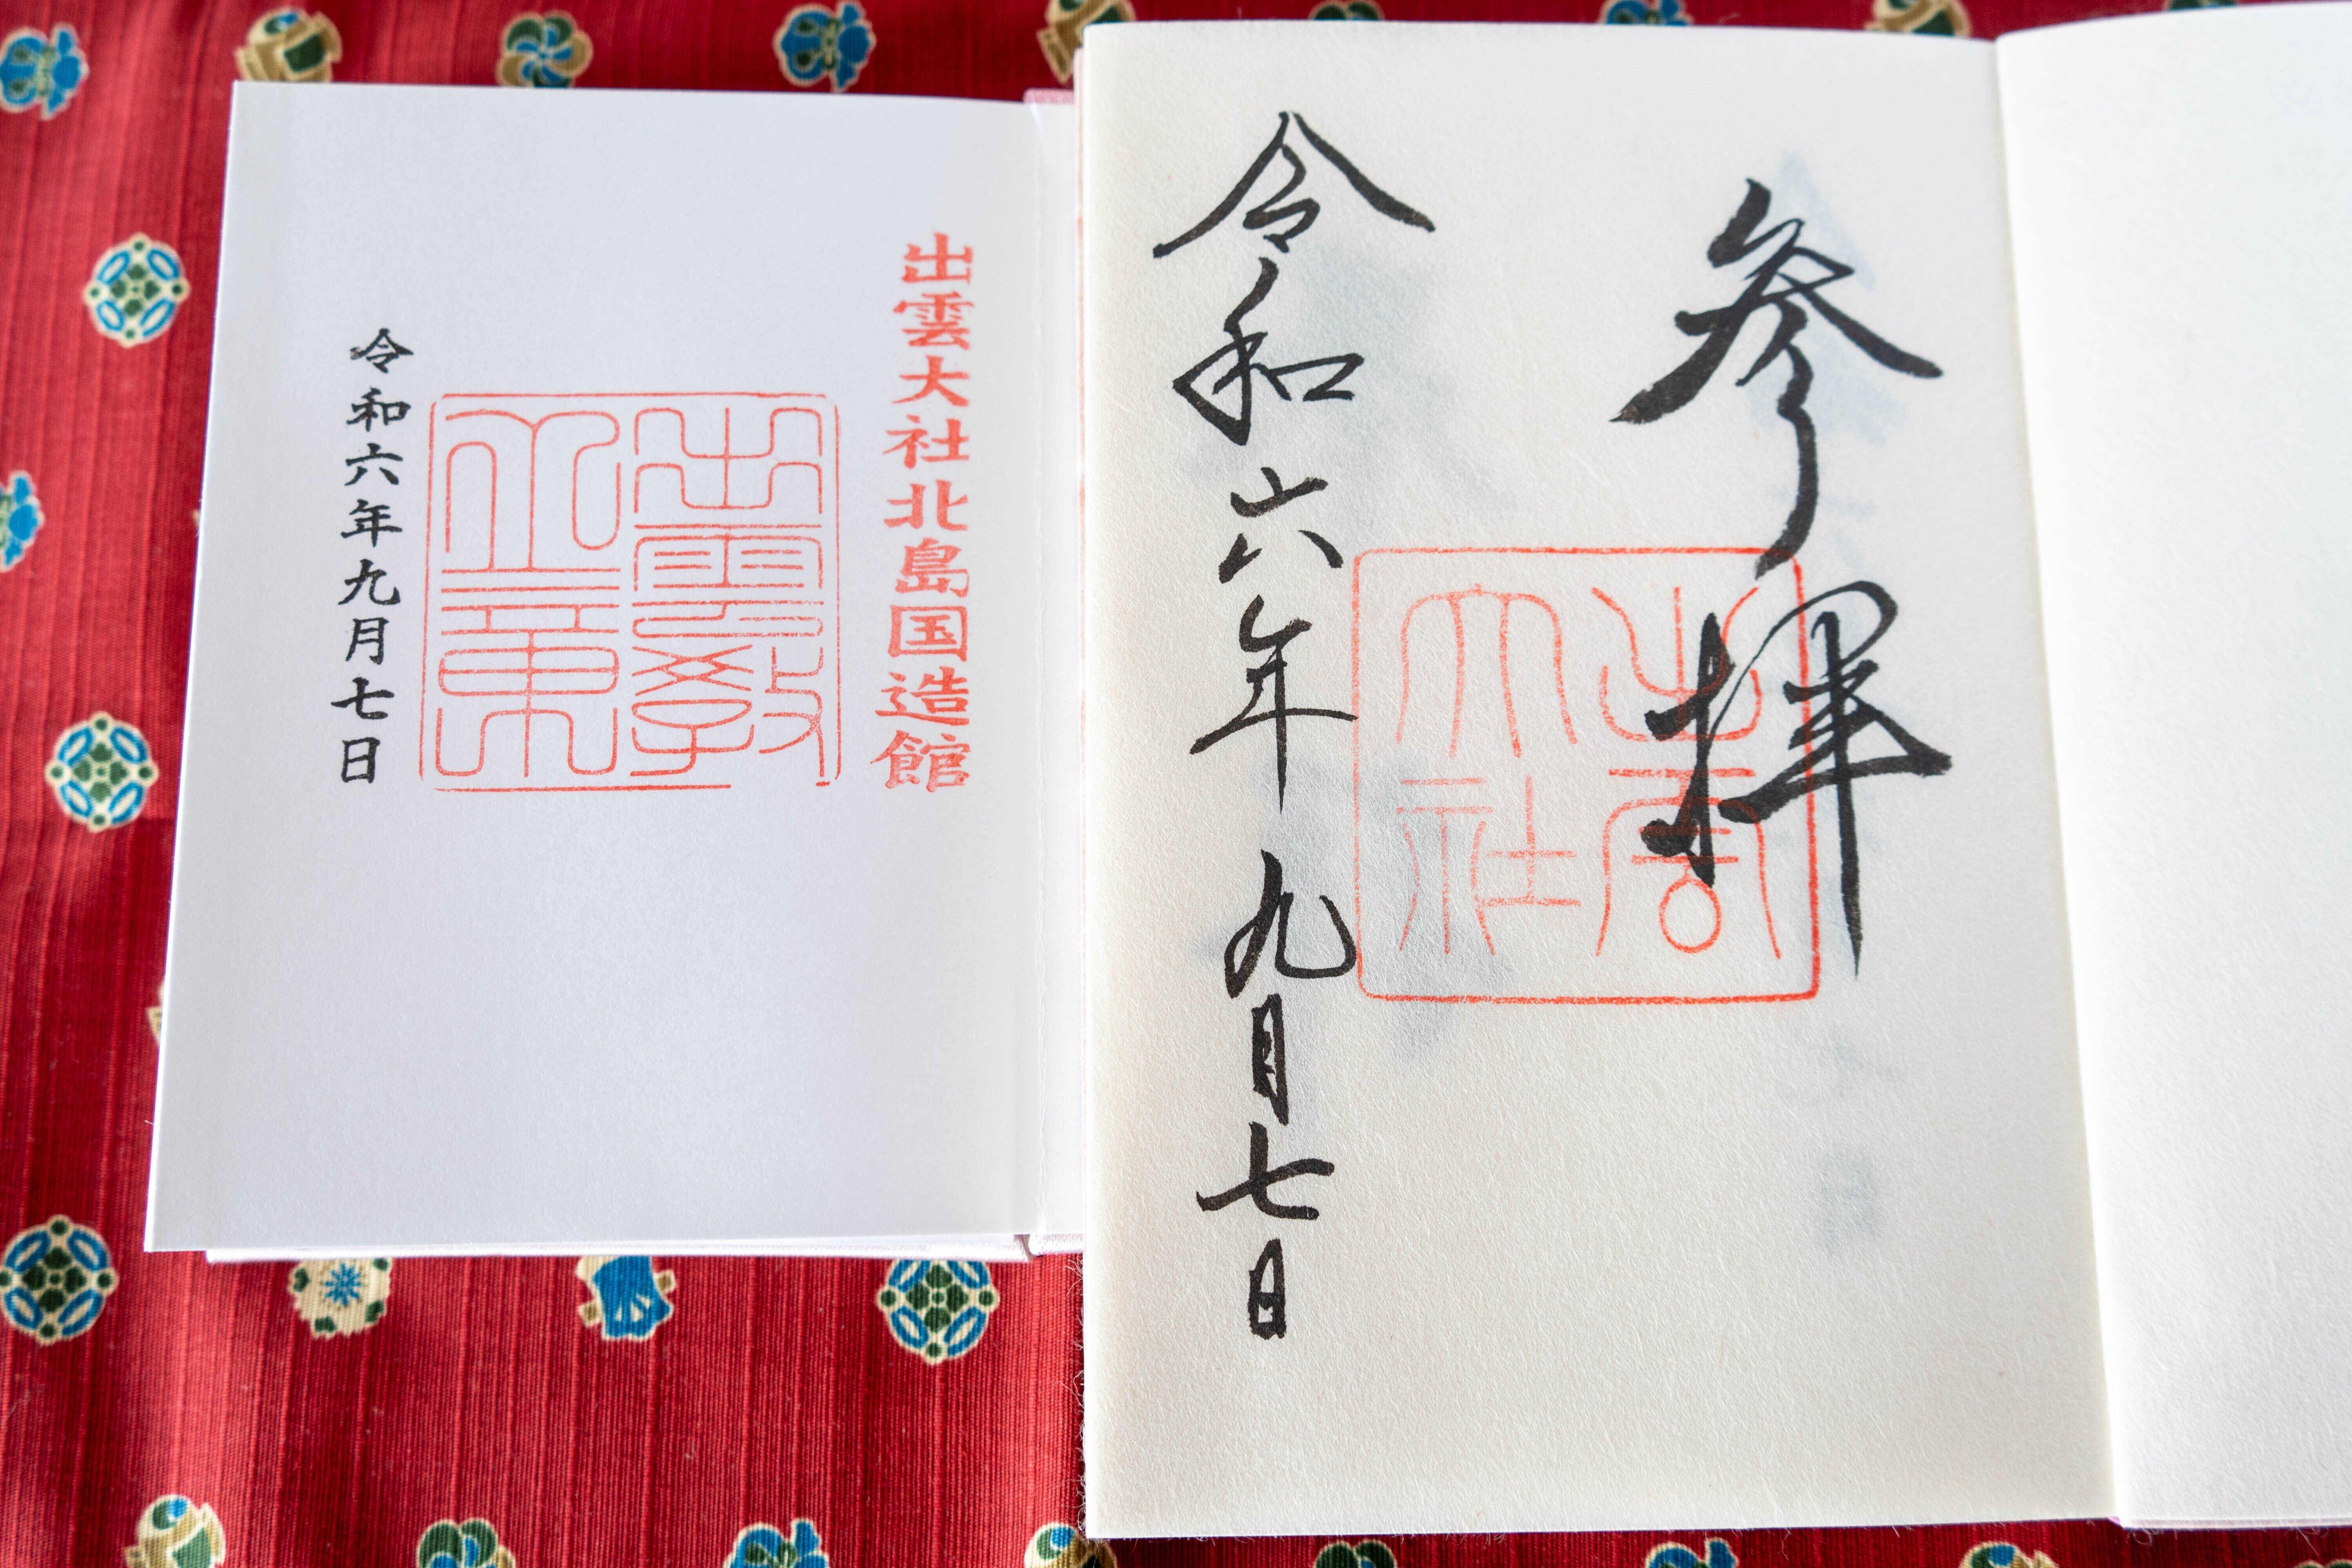 出雲大社北島国造館
出雲教
令和六年九月七日
参拝
出雲
大社
令和六年九月七日